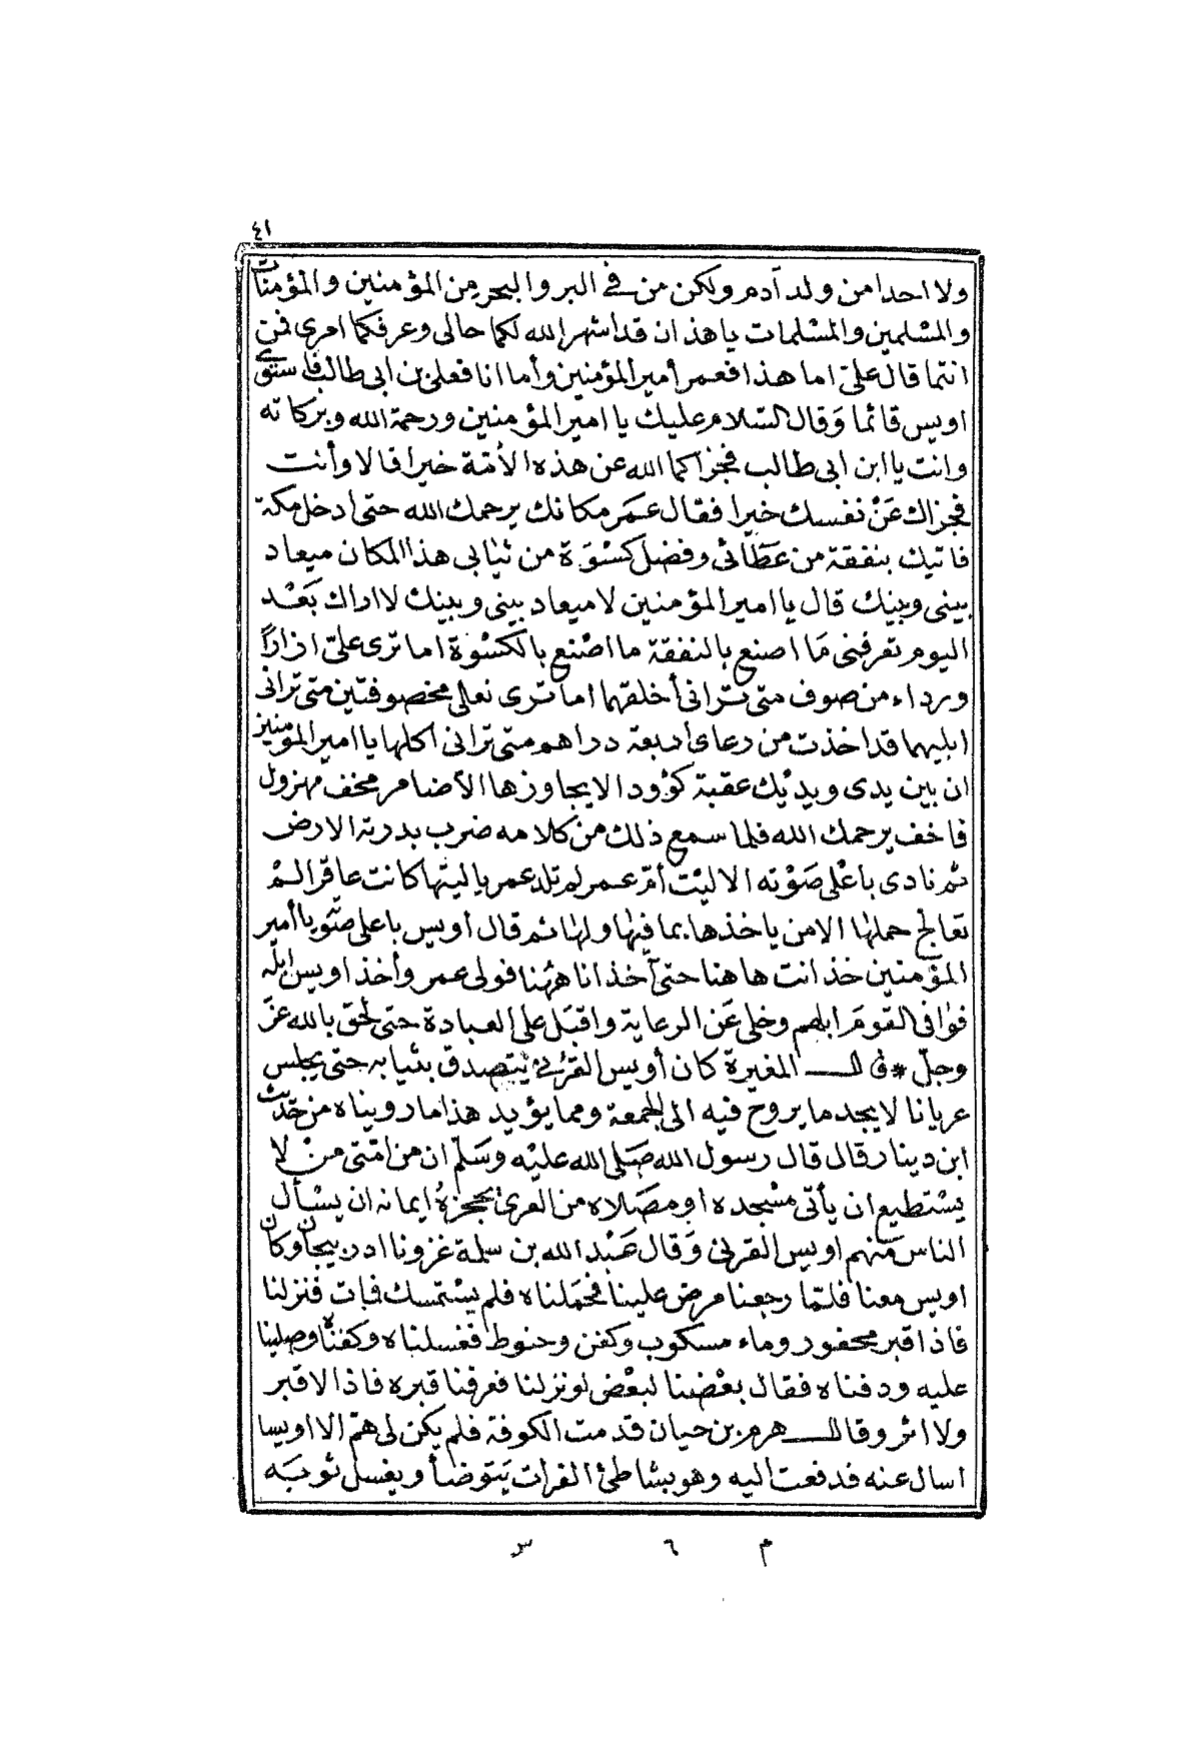 ٤١
ولا احدا من ولد آدم ولكن من في البر والبحر من المؤمنين والمؤمنات
والمسلمين والمسلمات يا هذان قد اشهر الله لكما حالى وعرفكما امرى فمن
انتما قال علىّ اما هذا فعمر أمير المؤمنين وأما انا فعلى بن ابى طالب فاستوى
اويس قائما وَقال السّلام عليك يا امير المؤمنين ورحمة الله وبركاته
وانت يا ابن ابى طالب فجزاكما الله عن هذه الأمّة خيرا قالا وأنت
فجزاك عَنْ نفسك خيرا فقال عمَر مكانك يرحمك الله حتى ادخل مكة
فاتيك بنفقة من عَطَائى وفضل كسْوَة من ثيابى هذا المكان ميعاد
بينى وبينك قال يا امير المؤمنين لا ميعاد بينى وبينك لا اراك بَعْد
اليوم تعرفنى مَا اصنع بالنفقة ما اصْنع بالكسْوة اما ترى علىّ ازارًا
ورداء من صوف متى ترانى أخلقهما اما ترى نعلى مخصوفتين متى ترانى
ابليهما قد اخذت من رعاى أربعة دراهم متى ترانى اكلها يا امير المؤمنين
ان بين يدى ويديْك عقبة كؤودا لا يجاوزها الا ضامر مخف مهزول
فاخف يرحمك الله فلما سمع ذلك من كلامه ضرب بدرته الارض
ثم نادى باعْلى صَوْته الا ليْت أمّ عمر لم تلد عمر يا ليتها كانت عاقر الم
تعالج حملها الا من ياخذها بما فيها ولها ثم قال أويس باعلى صَوته يا أمير
المؤمنين خذ انت ها هنا حتى آخذ انا ههنا فولى عمر وأخذ اويس ابله
فوافى القومَ ابلهم وخلى عَن الرعاية واقبَل على العبادة حتى لحق بالله عزّ
وجلّ * قال المغيرة كان أويس القرنى يتصدق بثيابه حتى يجلس
عريانا لا يجد ما يروح فيه الى الجمعة ومما يؤيد هذا ما رويناه من حَديث
ابن دينار قال قال رسول الله صَلى الله عليْه وسَلّم ان من امّتى منْ لا
يسْتطيع ان يأتى مسْجده او مصَلاه من العرى يحجزهُ ايمانه ان يسْأل
الناس منهم اويس القرنى وَقال عَبْد الله بن سلمة غزونا اذربيجان وكان
اويس معنا فلمّا رجعنا مرض علينا فحمَلناه فلم يسْتمسك فمات فنزلنا
فاذا قبر محفور وماء مسكوب وكفن وحنوط فغسلناه وكفناه وصلينا
عليه ودفناه فقال بعْضنا لبعْض لو نزلنا فعرفنا قبره فاذا لا قبر
ولا اثر وقال هرم بن حيان قدمت الكوفة فلم يكن لى همّ الا اويسا
اسال عنه فدفعت اليه وهو بشاطئ الفرات يَتوضأ ويغسل ثوبَه
م ٦ س